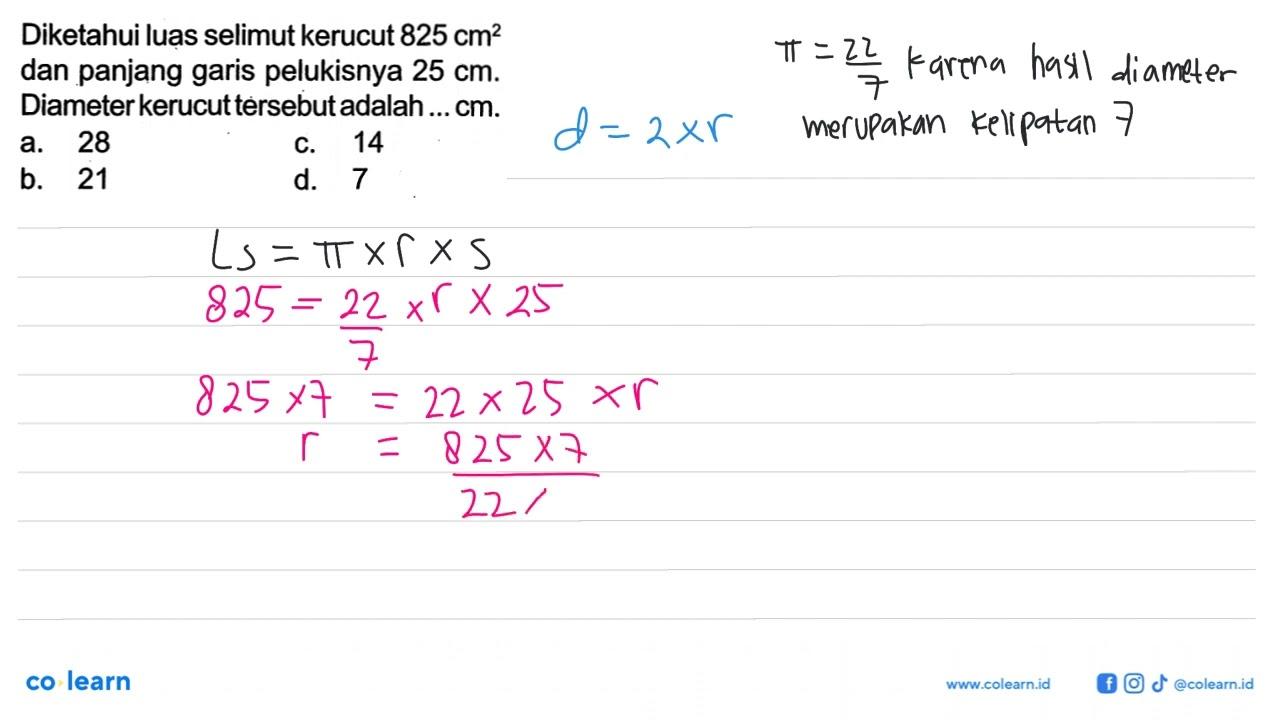 Diketahui luas selimut kerucut 825 cm²
dan panjang garis pelukisnya 25 cm.
Diameter kerucut tersebut adalah ... cm.
a. 28 c. 14
b. 21 d. 7
π = 22/7 karena hasil diameter
merupakan kelipatan 7
d = 2 × r
Ls = π × r × s
825 = 22/7 × r × 25
825 × 7 = 22 × 25 × r
r = 825 × 7
22
co learn
www.colearn.id @colearn.id